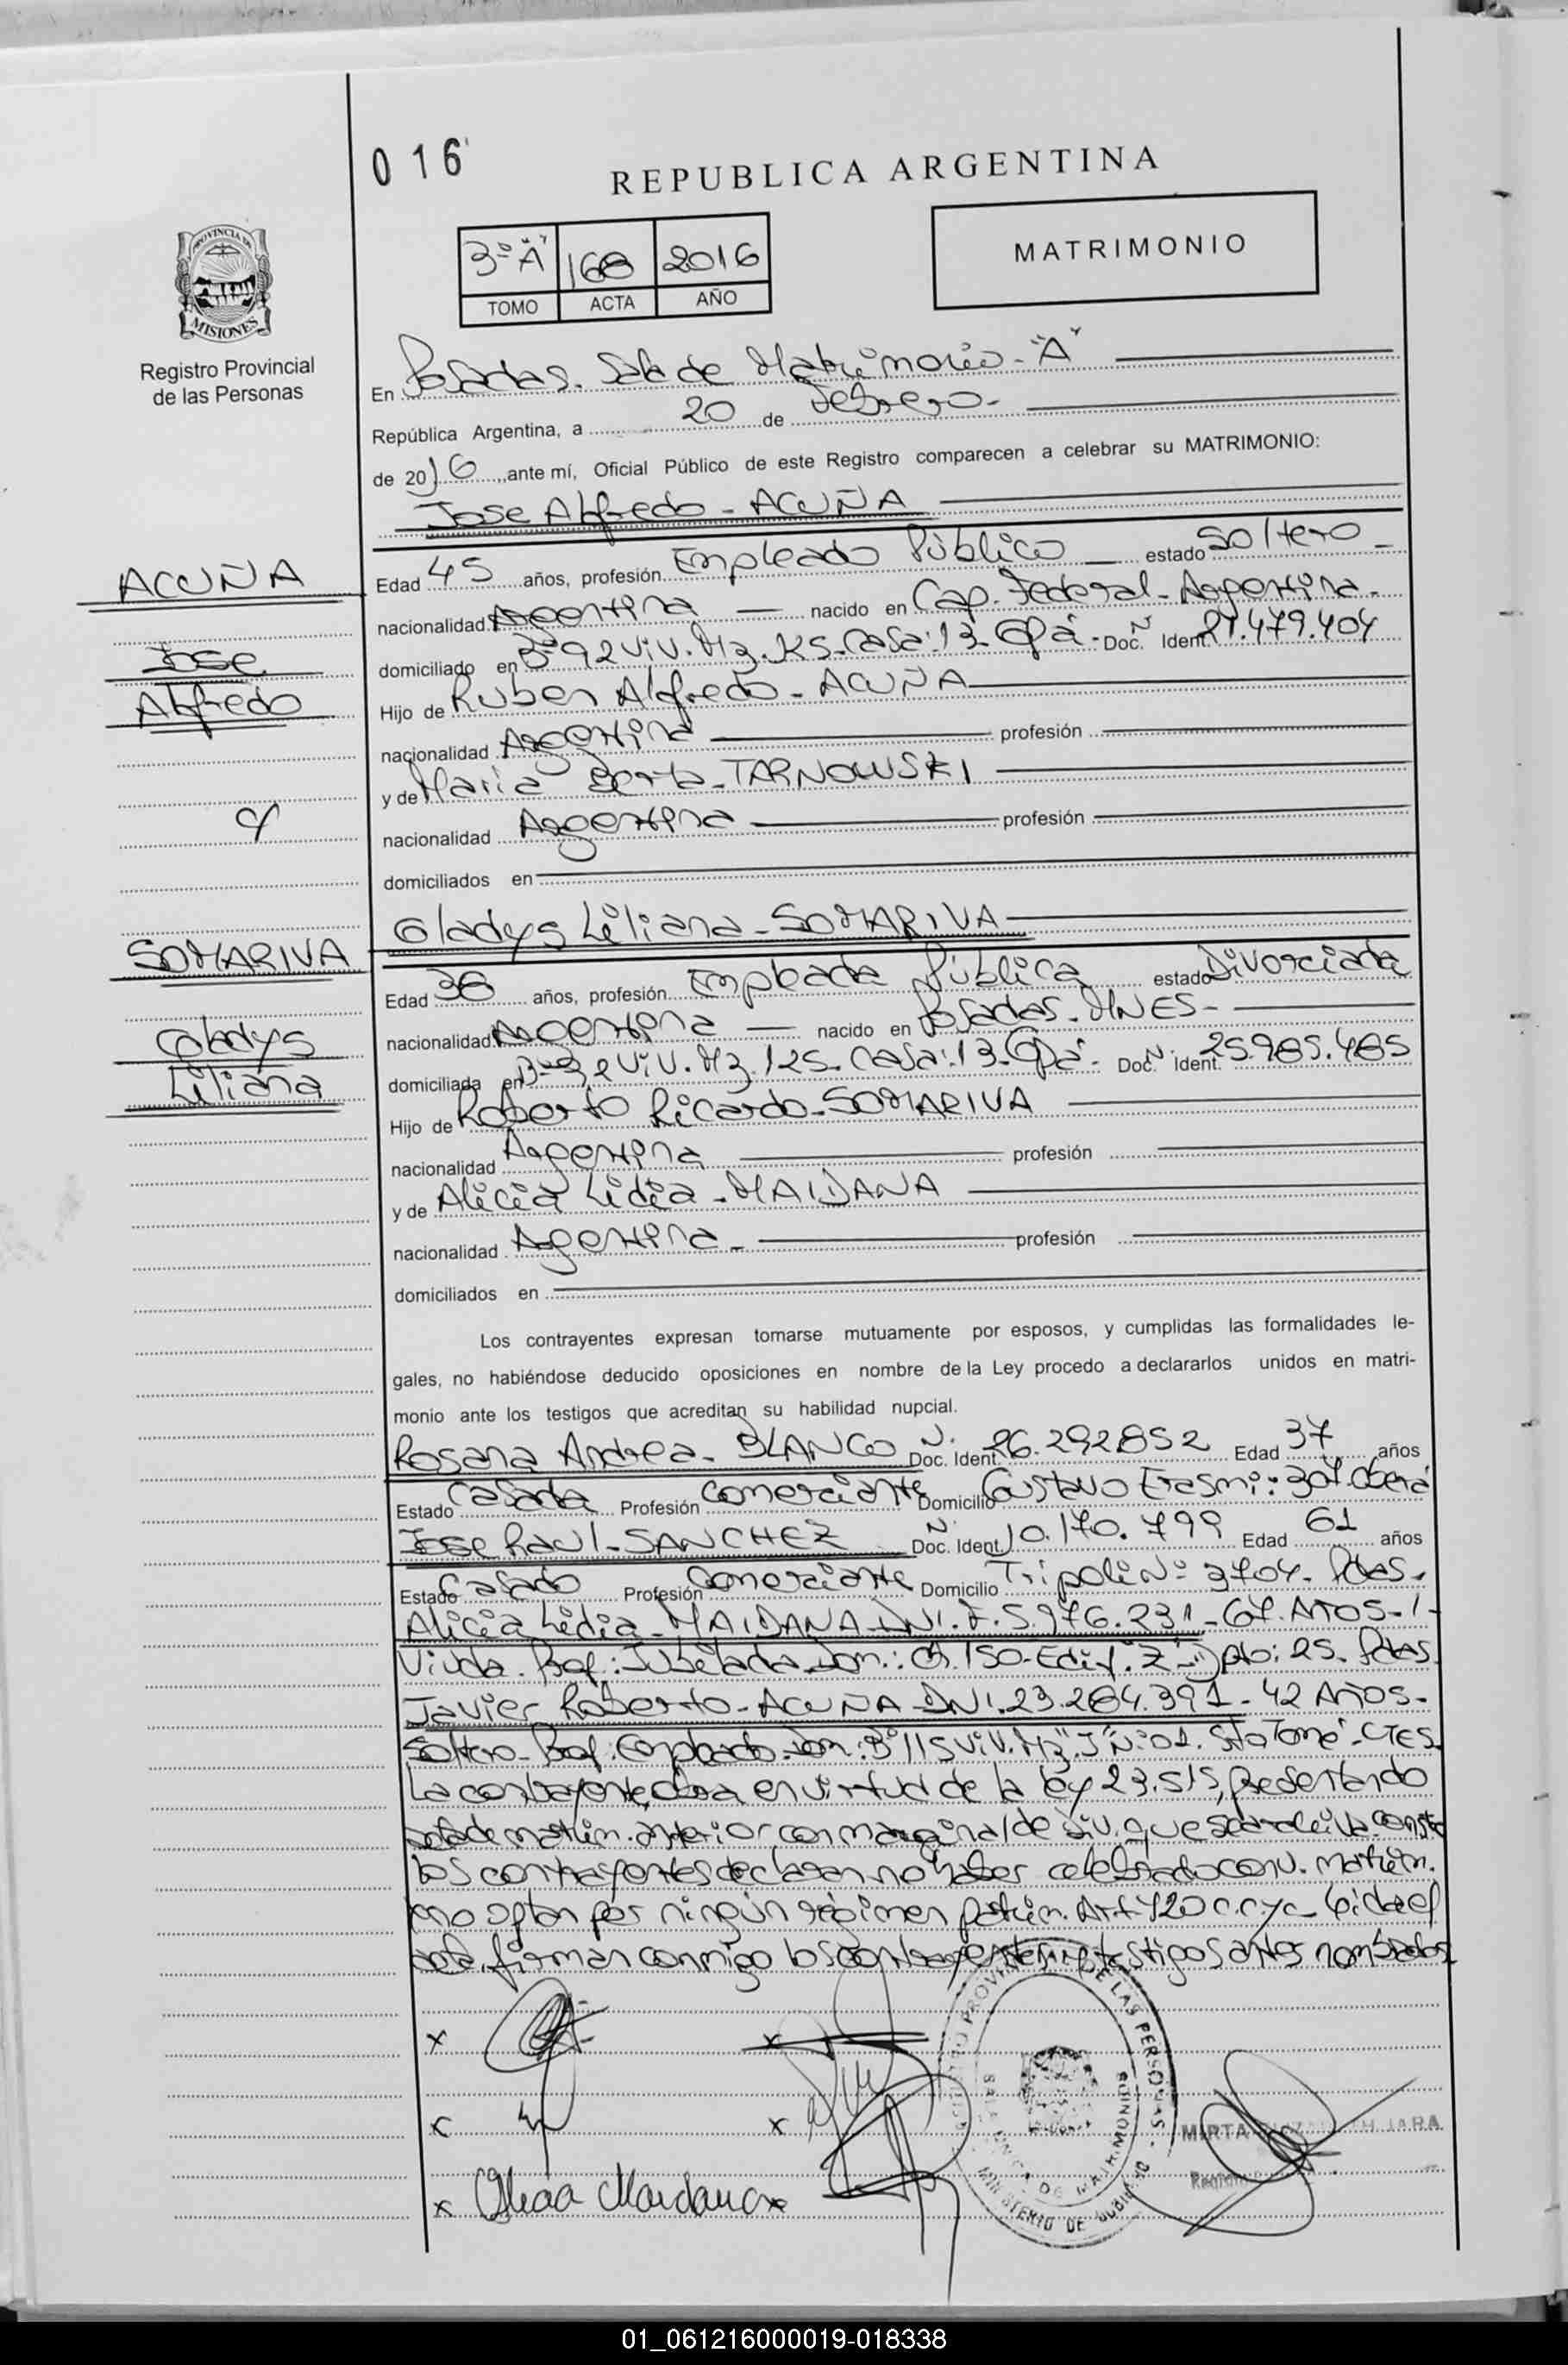 016
REPUBLICA ARGENTINA
PROVINCIA DE
MISIONES
Registro Provincial
de las Personas
3º "A" 168 2016
TOMO ACTA AÑO
MATRIMONIO
En Posadas. Sala de Matrimonio - "A"
República Argentina, a 20 de Febrero-
de 2016, ante mí, Oficial Público de este Registro comparecen a celebrar su MATRIMONIO:
Jose Alfredo - ACUÑA
ACUÑA
Jose
Alfredo
Edad 45 años, profesión Empleado Público estado Soltero -
nacionalidad Argentina — nacido en Cap. Federal - Argentina -
domiciliado en Bº 92 Viv. Mz. Casa: 13 - Gpá - Doc. Nº Ident. 21.479.404
Hijo de Ruben Alfredo - ACUÑA
nacionalidad Argentina profesión
y de Maria Berta - TARNOWSKI
nacionalidad Argentina profesión
domiciliados en
c/
Gladys Liliana - SOMARIVA
SOMARIVA
Gladys
Liliana
Edad 38 años, profesión Empleada Pública estado Divorciada
nacionalidad Argentina — nacido en Posadas - MNES -
domiciliada en Bº 92 Viv. Mz. Casa: 13 - Gpá - Doc. Nº Ident. 25.985.485
Hijo de Roberto Ricardo - SOMARIVA
nacionalidad Argentina profesión
y de Alicia Lidia - MAIDANA
nacionalidad Agentina - profesión
domiciliados en
Los contrayentes expresan tomarse mutuamente por esposos, y cumplidas las formalidades le-
gales, no habiéndose deducido oposiciones en nombre de la Ley procedo a declararlos unidos en matri-
monio ante los testigos que acreditan su habilidad nupcial.
Rosana Andrea - BLANCO Doc. Nº Ident. 26.292.852 Edad 37 años
Estado Casada Profesión Comerciante Domicilio Gustavo Erasmi: 307. Oberá
Jose Raul - SANCHEZ Doc. Nº Ident. 10.170.799 Edad 61 años
Estado Casado Profesión Comerciante Domicilio Tripoli Nº 3704 - Pdas.
Alicia Lidia - MAIDANA - DNI. F. 5.976.231 - 67. AÑOS -
Viuda. Prof.: Jubilada - Dom.: Ch. 150 - Edif. "Z" - Dpto: 25. Pdas.
Javier Roberto - ACUÑA - DNI. 23.284.391 - 42 AÑOS -
Soltero - Prof: Empleado - Dom: Bº 115 Viv. Mz "J" Nº: 01. Sto Tomé - CTES.
La contrayente obra en virtud de la ley 23.515, presentando
acta de matrim. anterior con marginal de div. que se archiva. Conste
los contrayentes declaran no haber celebrado conv. matrim.
no optan por ningún régimen patrim. Art 420 c.c y c - Leida el
acta, firman conmigo los contrayentes y testigos antes nombrados
x x
x x
x Alicia Maidana x
REGISTRO PROVINCIAL DE LAS PERSONAS
SALA UNICA DE MATRIMONIOS
MINISTERIO DE GOBIERNO
MIRTA JARA
01_061216000019-018338